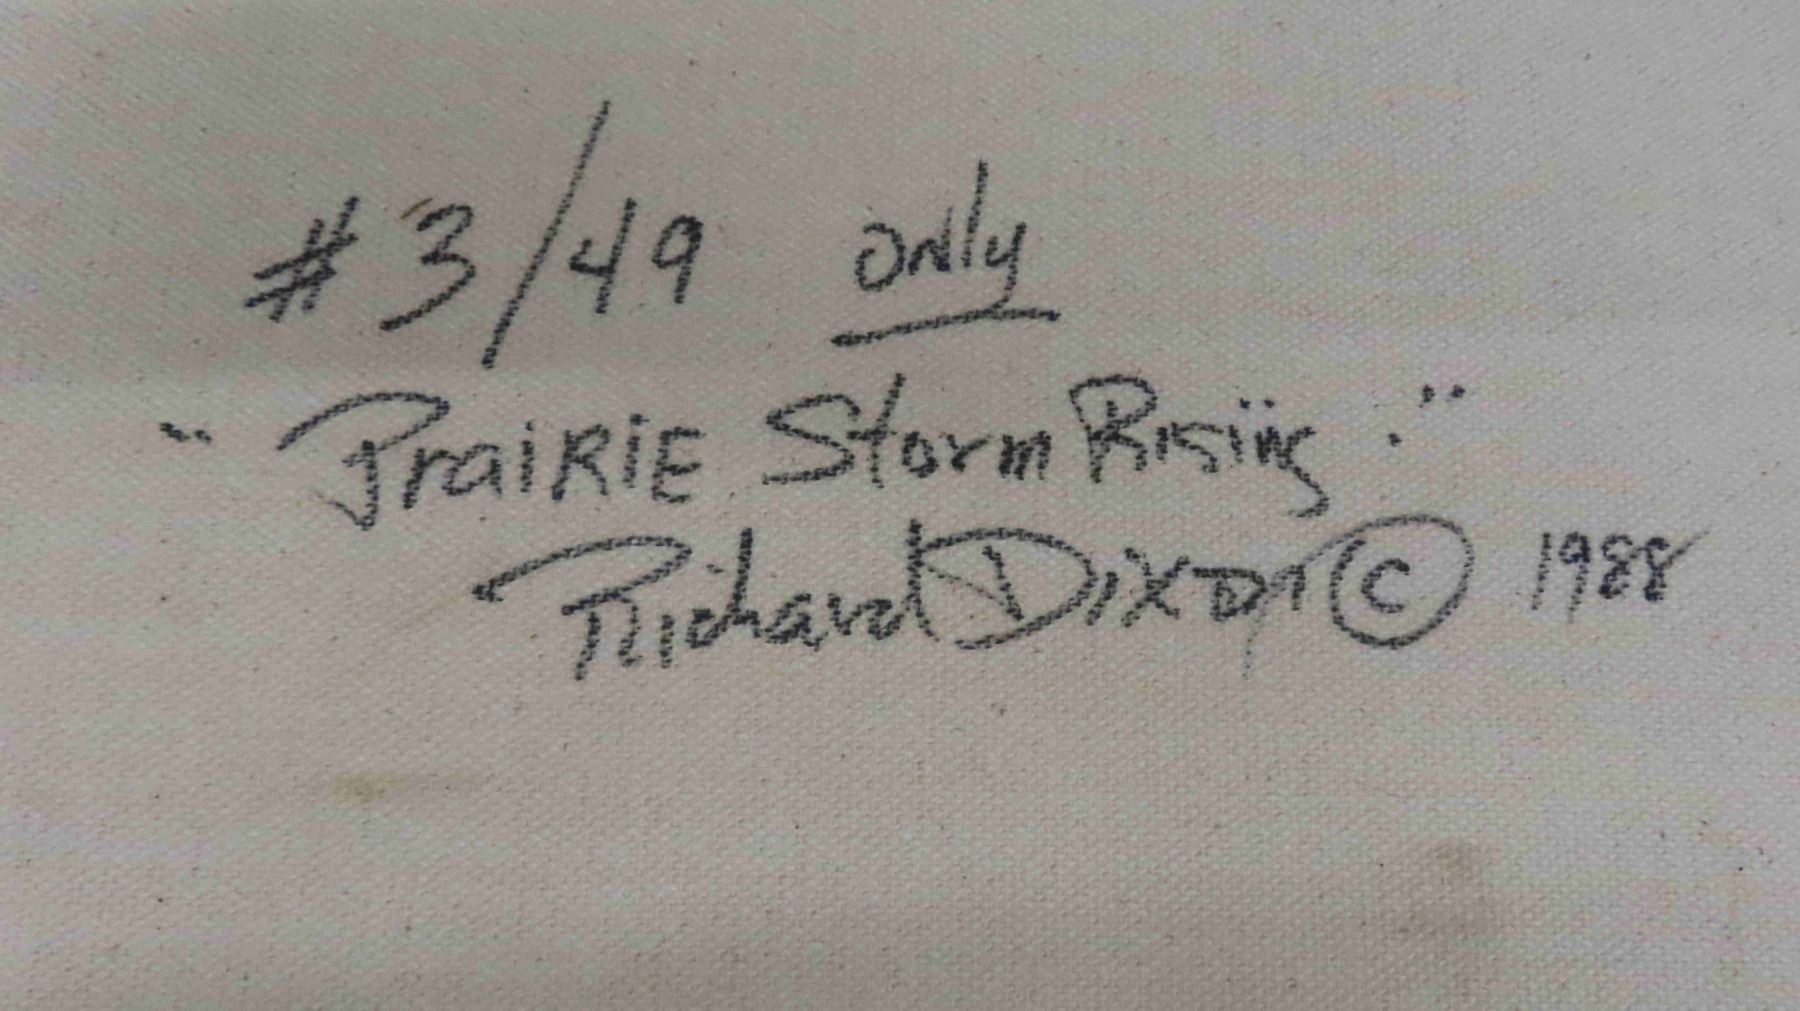 #3/49 only
"PrairiE Storm Rising."
Richard Dixon © 1988